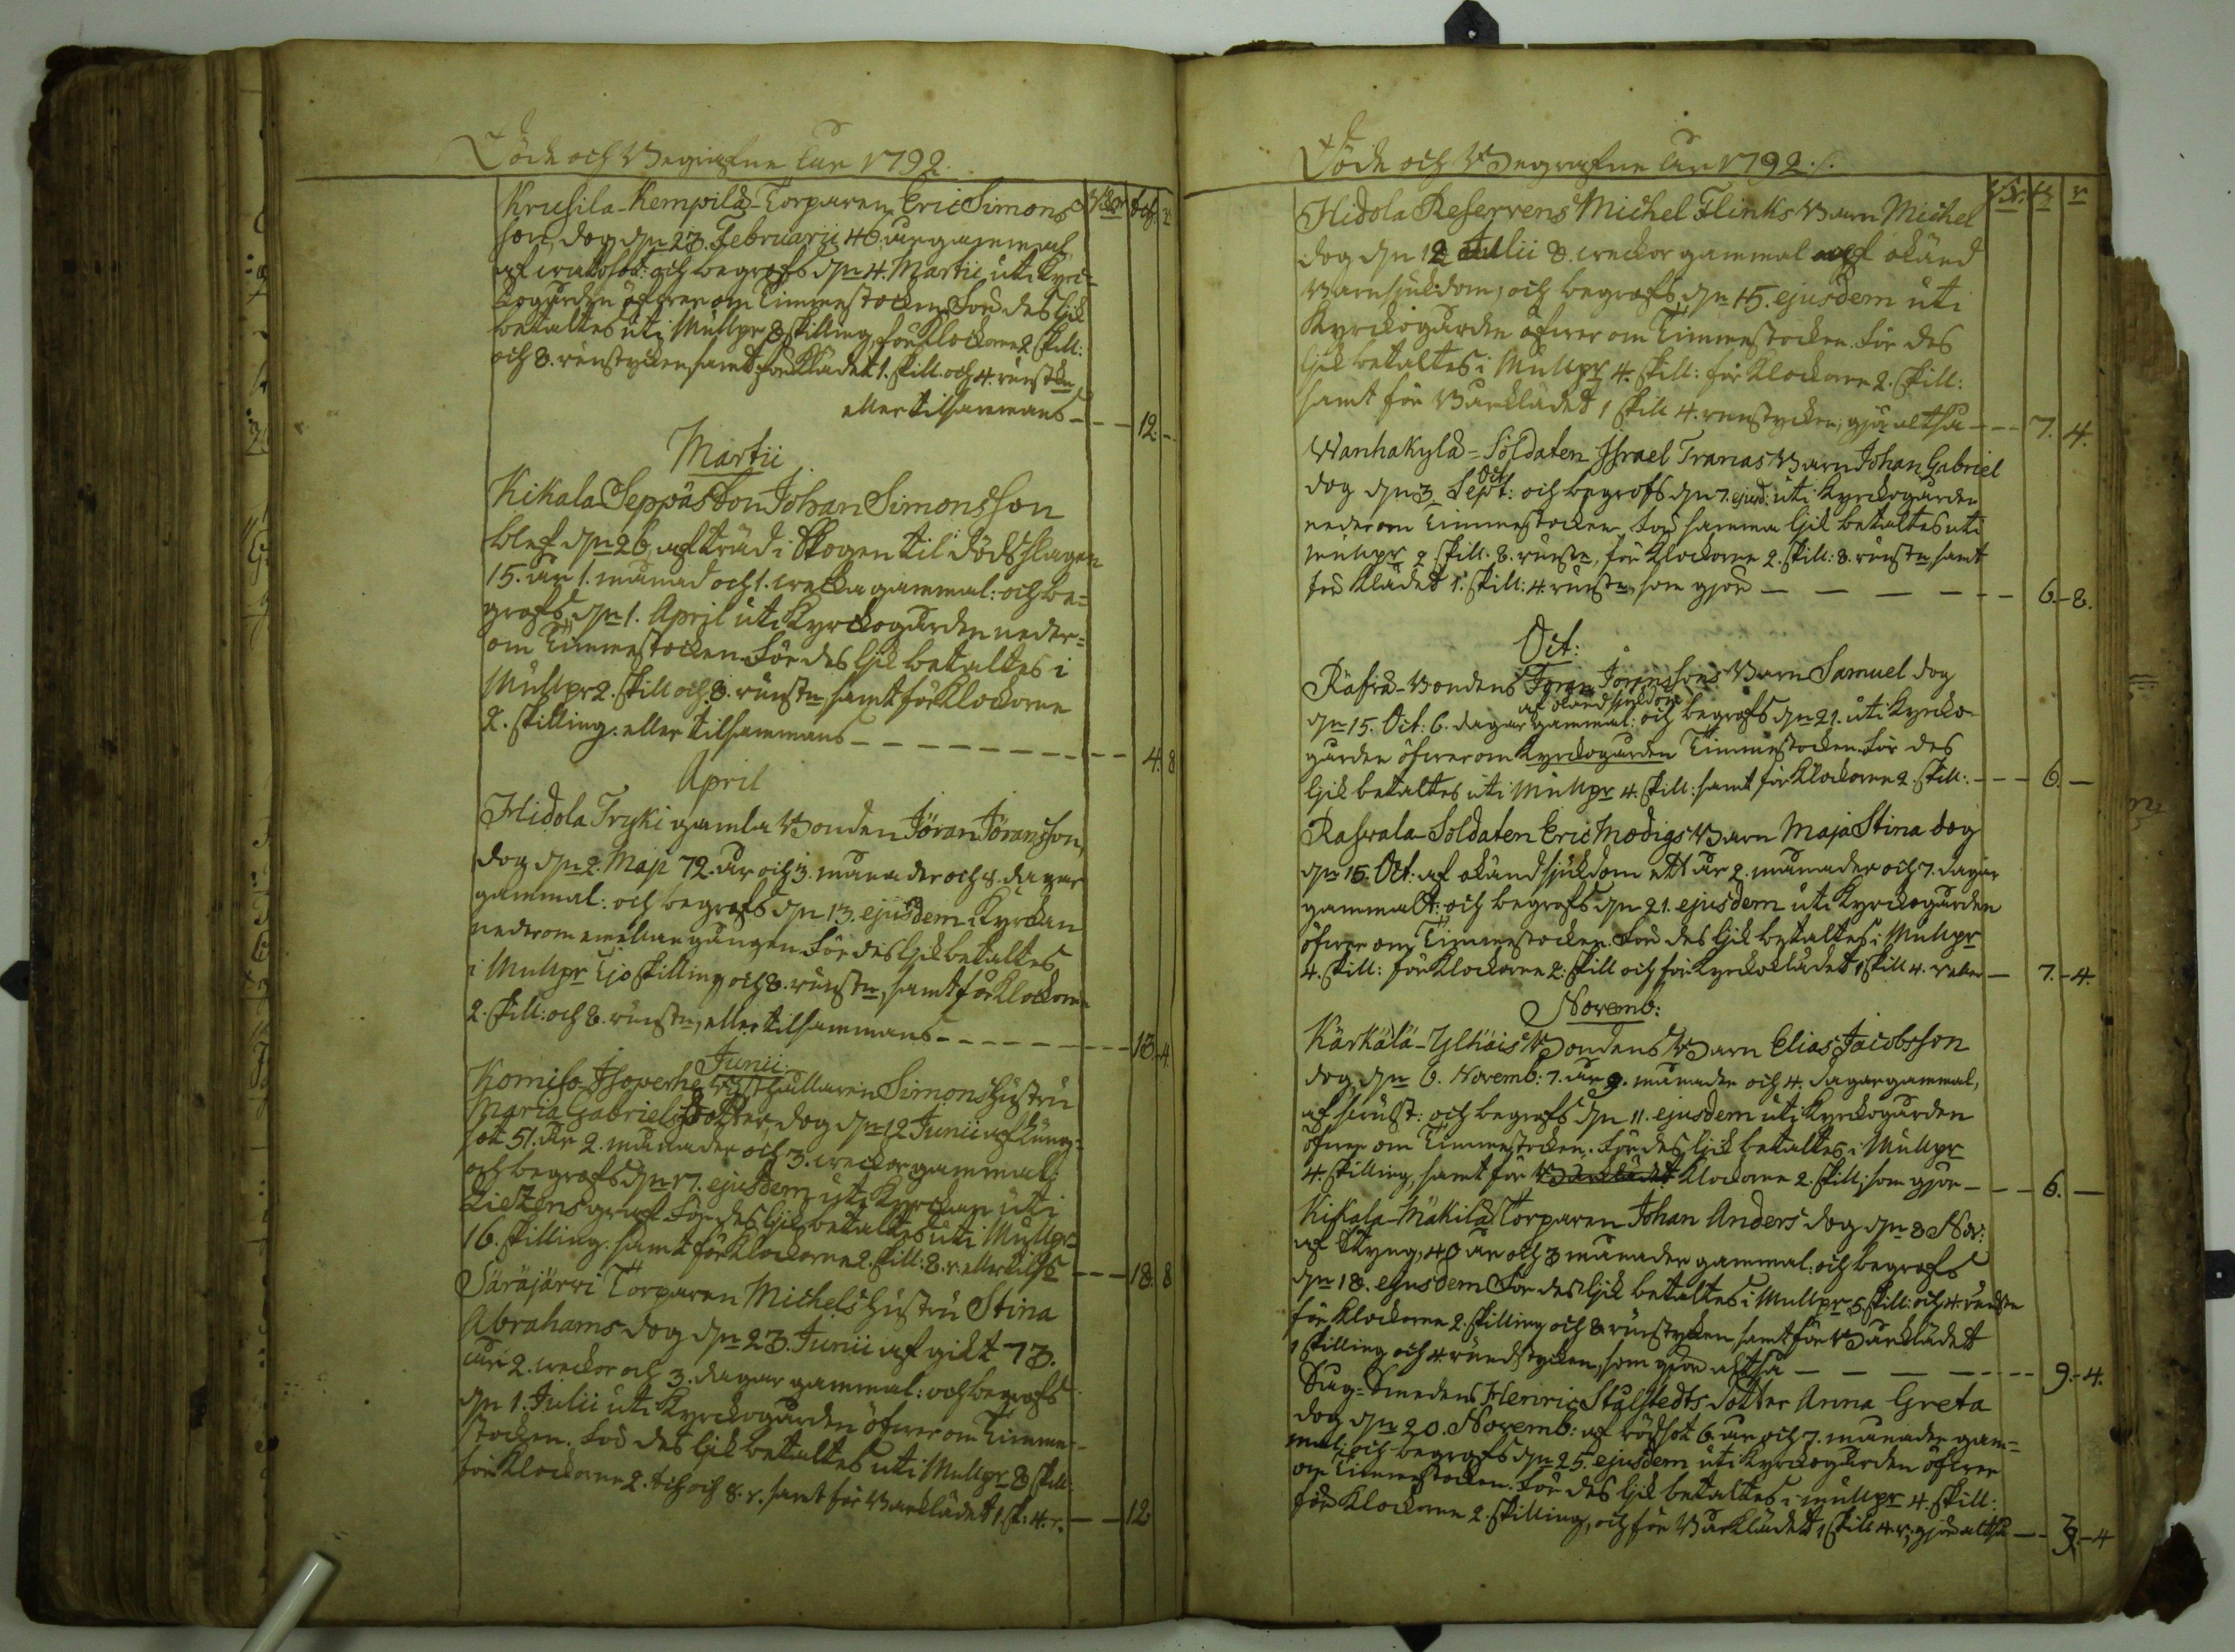 Döde och Begrafne År 1792.
Krusila-Kempilä-Torparen Eric Simons
son, dog dn 23. Februarii 46. år gammal
och begrofs dn 4. Martii uti Kyrc-
kogården öfwer om Timmestocken. För des lik
betaltes uti Mullpr 8 skilling, för Klockorne 2 skill:
och 8. runstycken, samt för Klädet 1. skill. och 4. runstn
eller tilsammans - - - 12. -
Martii
Kikala Seppäs Son Johan Simonsson
blef dn 26. af träd i Skogen til dödsslagen
15. år 1. månad och 1. wecka gammal: och be=
grofs dn 1. April uti Kyrckogården neder=
om Timmestocken. För des lik betaltes i
Mullpr 2. skill och 8. runstn, samt för Klockorne
2. skilling. eller tilsammans - - - 4. 8
April
Hidola Tryki gamla Bonden Jöran Jöransson,
dog dn 2. Maji 72. år och 3. månader och 8. dagar
gammal: och begrofs dn 13. ejusdem i Kyrckan
neder om gången. För des lik betaltes
i Mullpr Tjo skilling och 8. runstn, samt för Klockorne
2. skill: och 8. runstn, eller tilsammans - - - 13. 4
Junii
Komiso-Isoperhe Simons Hustru
Maria Gabrielsdotter, dog dn 12 Junii af lung-
sot 51. År 2. månader och 3. weckor gammal:
och begrofs dn 17. ejusdem uti Kyrckan uti
graf. För des lik betaltes uti Mullpr
16. skilling. samt för Klockorne 2. skill: 8. r. eller tils - - - 18. 8
Säräjärvi Torparen Michels Hustru Stina
Abrahams dog dn 23. Junii af gikt 73.
år 2. weckor och 3. dagar gammal: och begrofs
dn 1. Julii uti Kyrckogården öfwer om Timme-
stocken. För des lik betaltes uti Mullpr 8 skill:
för Klockorne 2. sch och 8. r. samt för Barklädet 1. sk: 4. r. - - 12
Döde och Begrafne År 1792.
Hidola Reservens Michel Flinks Barn Michel
dog dn 12 Julii 8. weckor gammal af okänd
Barnsjukdom, och begrofs dn 15. ejusdem uti
Kyrckogården öfwer om Timmestocken. För des
lik betaltes i Mullpr 4. skill: för Klockorne 2. skill:
samt för Barklädet 1 skill 4. runstycken, gjör altså - - - 7. 4.
Wanhakylä-Soldaten Israel Tranas Barn Johan Gabriel
dog dn 3. Sept: Oct och begrofs dn 7. ejusd: uti Kyrckogården
neder om Timmestocken, för samma lik betaltes uti
mullpr 2 skill. 8. runstn, för Klockorne 2. skill: 8. runstn samt
för Klädet 1. skill: 4. runstn, som gjör - - - 6. - 8.
Oct:
Räfsä-Bondens Jöran Jöranssons Barn Samuel dog
dn 15. Oct: 6. dagar gammal: af okänd sjukdom och begrofs dn 21. uti Kyrcko-
gården öfwer om Kyrckogården Timmestocken. För des
lik betaltes uti Mullpr 4. skill: samt för Klockorne 2. skill: - - - 6. -
Raswala-Soldaten Eric Modigs Barn Maja Stina dog
dn 15. Oct: af okänd sjukdom ett år 2. månader och 7. dagar
gammalt: och begrofs dn 21. ejusdem uti Kyrckogården
öfwer om Timmestocken. För des lik betaltes i Mullpr
4. skill: för Klockorne 2. skill och för Kyrckoklädet 1 skill 4. r eller - 7. - 4.
Novemb:
Kärkälä-Ylhäis Bondens Barn Elias Jacobsson
dog dn 6. Novemb: 7. år 9. månader och 4. dagar gammal,
och begrofs dn 11. ejusdem uti Kyrckogården
öfwer om Timmestocken. För des lik betaltes i Mullpr
4. skilling, samt för Barklädet Klockorne 2. skill; som gjör - - - 6. -
Kikala-Mäkilä Torparen Johan Anders dog dn 8 Nov:
af Styng, 40 år och 3 månader gammal: och begrofs
dn 18. ejusdem För des lik betaltes i Mullpr 5. skill: och 4. runstn
för Klockorne 2. skilling och 8. runstycken samt för Barklädet
1 skilling och 4. rundstycken, som gjör altså - - - 9. - 4.
Såg-Smedens Henric Stålstedts Dotter Anna Greta
dog dn 20. Novemb: af rödsot 6 år och 7. månader gam=
mal: och begrofs dn 25. ejusdem uti Kyrckogården öfwer
om Timmestocken. För des lik betaltes i mullpr 4. skill:
för Klockorne 2. skilling, och för Barklädet 1 skill 4. r, gjör altså - - 7. - 4